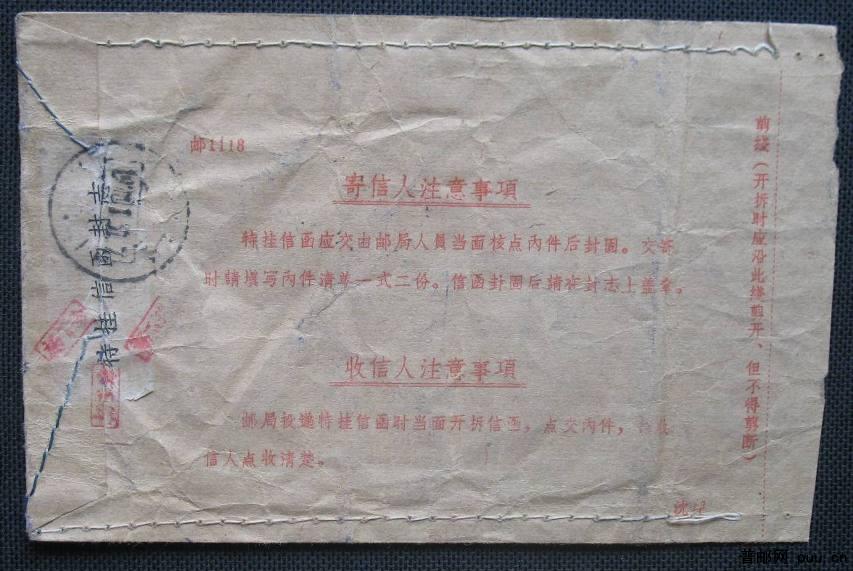 邮1118
寄信人注意事項
特挂信函应交由邮局人員当面核点內件后封固。交寄
时請填写內件清单一式二份。信函封固后請在封志上盖章。
收信人注意事項
邮局投递特挂信函时当面开拆信函，点交內件，
信人点收清楚。
剪綫（开拆时应沿此綫剪开、但不得剪断）
特挂信函封志
沈
普邮网 puu.cn